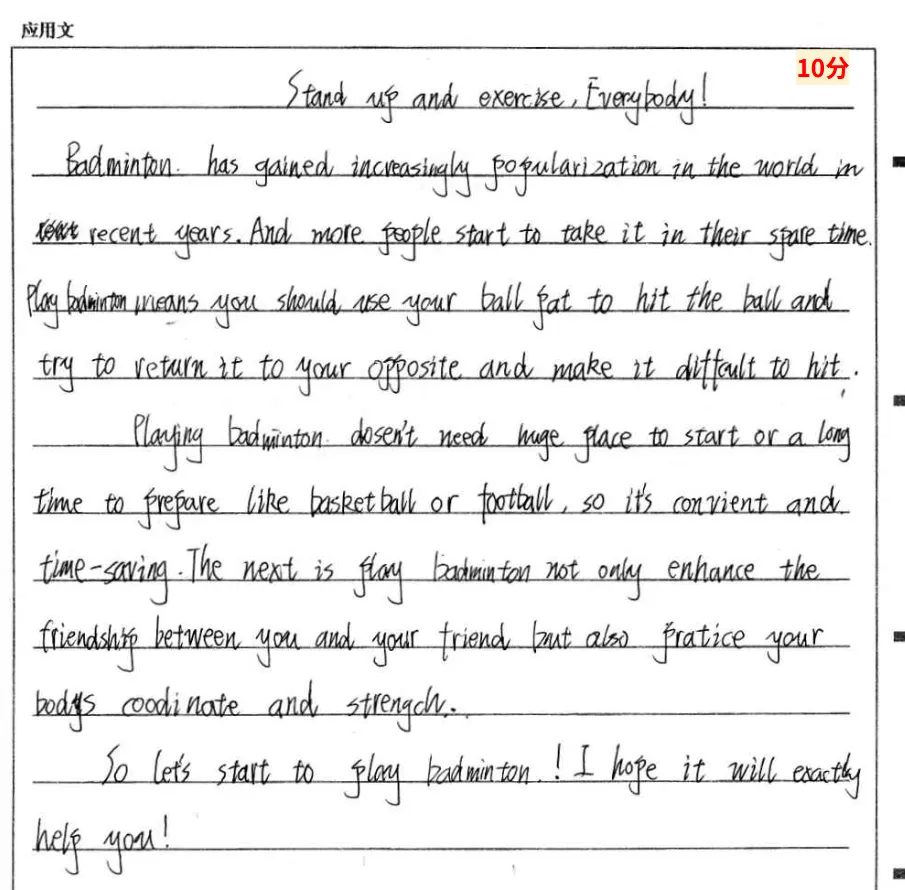 应用文
10分
Stand up and exercise, Everybody!
Badminton has gained increasingly popularization in the world in
recent years. And more people start to take it in their spare time.
Play badminton means you should use your ball pat to hit the ball and
try to return it to your opposite and make it difficult to hit.
Playing badminton dosen't need huge place to start or a long
time to prepare like basketball or football, so it's convient and
time-saving. The next is play badminton not only enhance the
friendship between you and your friend but also pratice your
bodys coodinate and strength.
So let's start to play badminton! I hope it will exactly
help you!